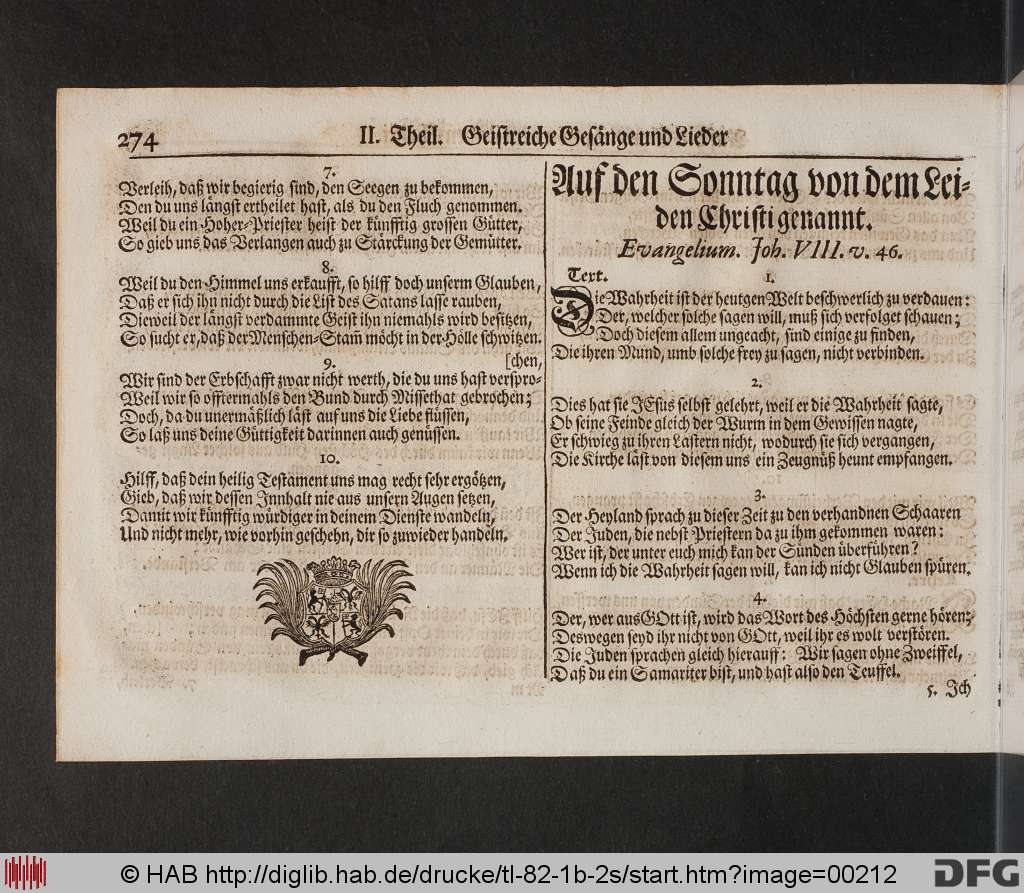 274
II. Theil. Geistreiche Gesänge und Lieder
7.
Verleih, daß wir begierig sind, den Seegen zu bekommen,
Den du uns längst ertheilet hast, als du den Fluch genommen.
Weil du ein Hoher-Priester heist der künfftig grossen Gütter,
So gieb uns das Verlangen auch zu Stärckung der Gemütter.
8.
Weil du den Himmel uns erkaufft, so hilff doch unserm Glauben,
Daß er sich ihn nicht durch die List des Satans lasse rauben,
Dieweil der längst verdammte Geist ihn niemahls wird besitzen,
So sucht er, daß der Menschen-Stam̃ möcht in der Hölle schwitzen.
9. [chen,
Wir sind der Erbschafft zwar nicht werth, die du uns hast verspro-
Weil wir so offtermahls den Bund durch Missethat gebrochen;
Doch, da du unermäßlich läst auf uns die Liebe flüssen,
So laß uns deine Güttigkeit darinnen auch genüssen.
10.
Hilff, daß dein heilig Testament uns mag recht sehr ergötzen,
Gieb, daß wir dessen Innhalt nie aus unsern Augen setzen,
Damit wir künfftig würdiger in deinem Dienste wandeln,
Und nicht mehr, wie vorhin geschehn, dir so zuwieder handeln.
Auf den Sonntag von dem Lei-
den Christi genannt.
Evangelium. Joh. VIII. v. 46.
Text. 1.
Die Wahrheit ist der heutgen Welt beschwerlich zu verdauen:
Der, welcher solche sagen will, muß sich verfolget schauen;
Doch diesem allem ungeacht, sind einige zu finden,
Die ihren Mund, umb solche frey zu sagen, nicht verbinden.
2.
Dies hat sie JEsus selbst gelehrt, weil er die Wahrheit sagte,
Ob seine Feinde gleich der Wurm in dem Gewissen nagte,
Er schwieg zu ihren Lastern nicht, wodurch sie sich vergangen,
Die Kirche läst von diesem uns ein Zeugnüß heunt empfangen.
3.
Der Heyland sprach zu dieser Zeit zu den verhandnen Schaaren
Der Juden, die nebst Priestern da zu ihm gekommen waren:
Wer ist, der unter euch mich kan der Sünden überführen?
Wenn ich die Wahrheit sagen will, kan ich nicht Glauben spüren.
4.
Der, wer aus GOtt ist, wird das Wort des Höchsten gerne hören;
Deswegen seyd ihr nicht von GOtt, weil ihr es wolt verstören.
Die Juden sprachen gleich hierauff: Wir sagen ohne Zweiffel,
Daß du ein Samariter bist, und hast also den Teuffel.
5. Ich
© HAB http://diglib.hab.de/drucke/tl-82-1b-2s/start.htm?image=00212
DFG